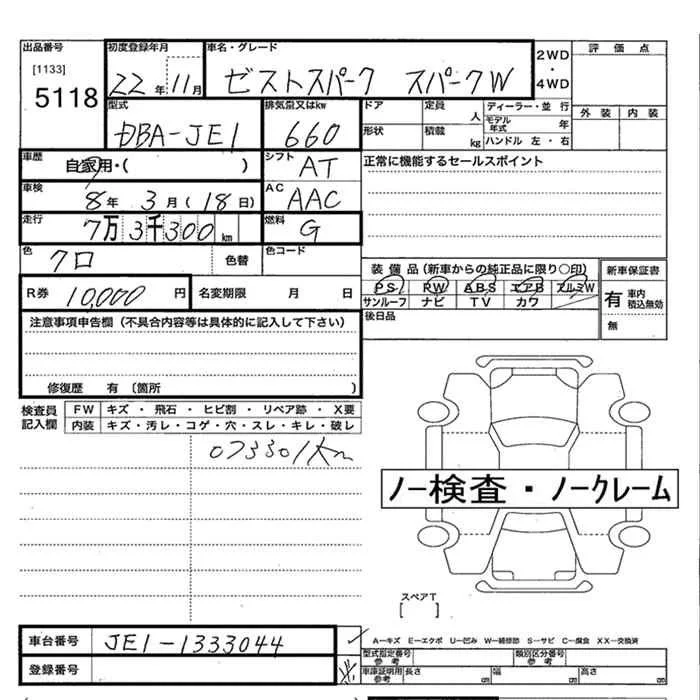 出品番号
[1133]
5118
初度登録年月
22年11月
車名・グレード
ゼストスパーク スパークW
2WD
・
4WD
評価点
外装 内装
型式
DBA-JE1
排気量又はkw
660
ドア
定員 人
ディーラー・並 行
モデル年式 年
形状
積載 kg
ハンドル 左・右
車歴
自家用・( )
シフト
AT
正常に機能するセールスポイント
車検
8年 3月(18日)
AC
AAC
走行
7万3千300km
燃料
G
色
クロ
色替
色コード
装備品(新車からの純正品に限り○印)
PS PW ABS エアB アルミW
サンルーフ ナビ TV カワ
新車保証書
有 車内積込無効
無
R券 10,000円
名変期限 月 日
後日品
注意事項申告欄(不具合内容等は具体的に記入して下さい)
修復歴 有 (箇所 )
検査員記入欄
FW キズ・飛石・ヒビ割・リペア跡・X要
内装 キズ・汚レ・コゲ・穴・スレ・キレ・破レ
073301km
ノー検査・ノークレーム
スペアT
[ ]
車台番号 JE1-1333044
登録番号
A―キズ E―エクボ U―凹み W―補修跡 S―サビ C―腐食 XX―交換済
型式指定番号 参考
類別区分番号 参考
車庫証明用 参考 長さ cm 幅 cm 高さ cm